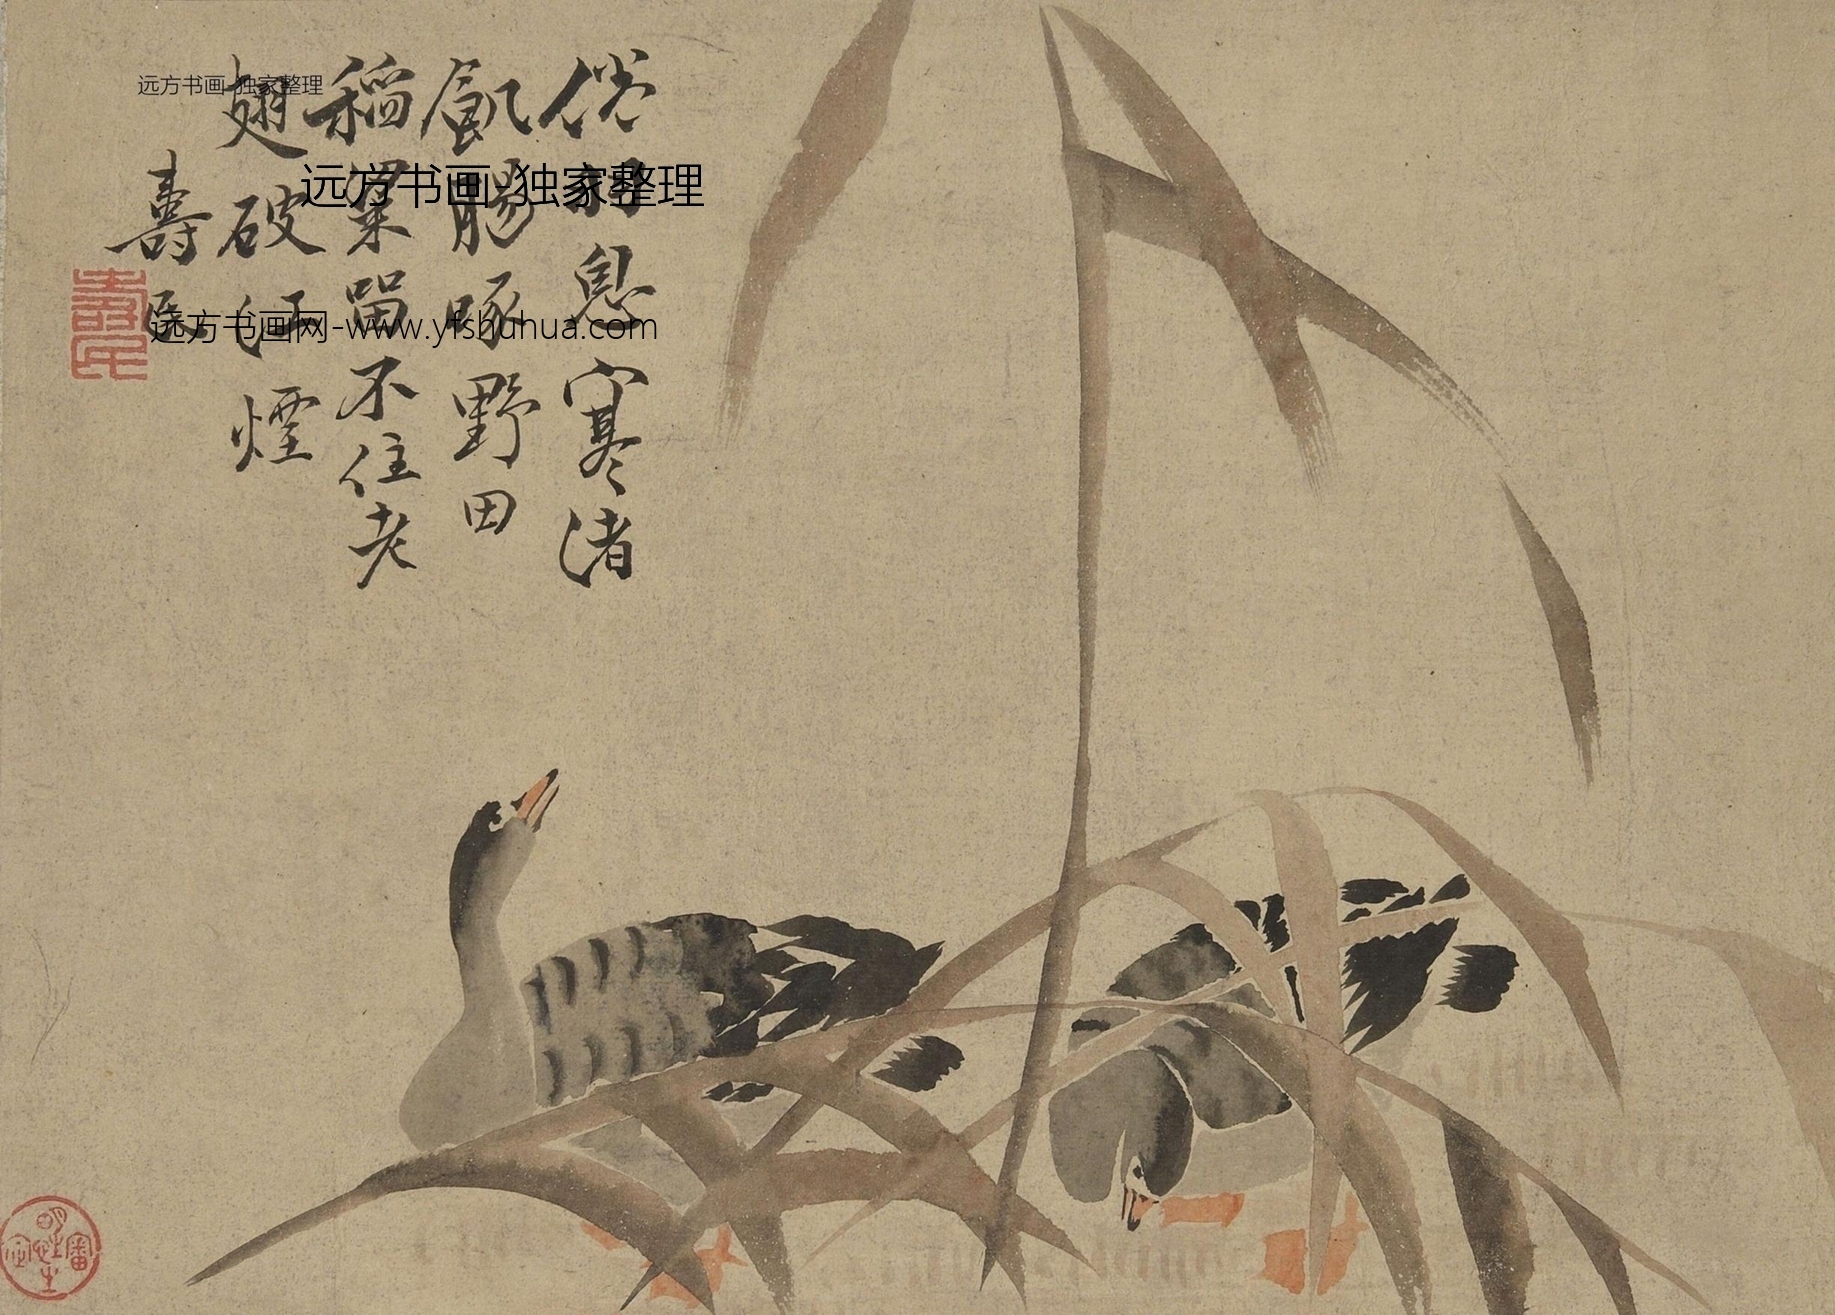 俗翮息寒渚
飢腸啄野田
稻粱留不住老
翅破江煙
壽民
壽民
远方书画-独家整理
远方书画-独家整理
远方书画网-www.yfshuhua.com